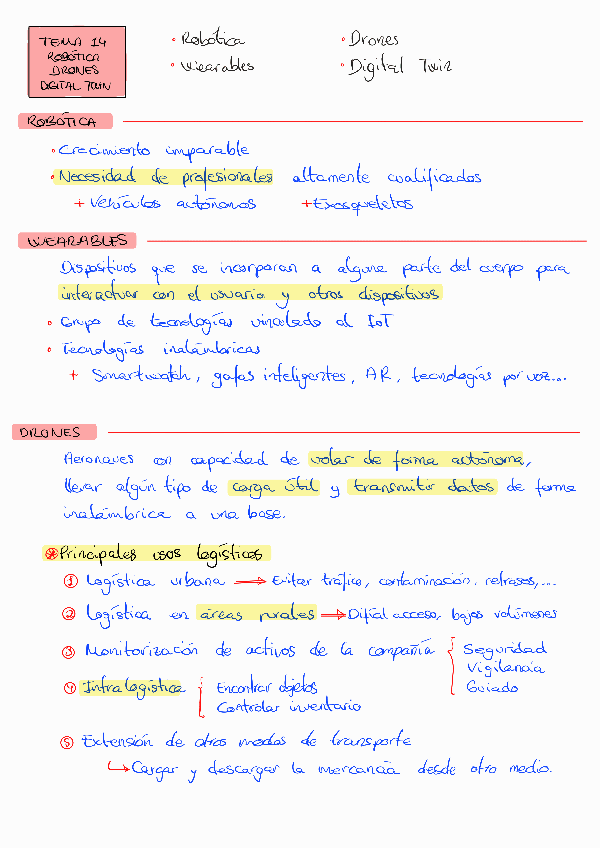 TEMA 14
ROBÓTICA
DRONES
DIGITAL TWIN
• Robótica
• Drones
• Wearables
• Digital Twin
ROBÓTICA
• Crecimiento imparable
• Necesidad de profesionales altamente cualificados
+ Vehículos autónomos + Exosqueletos
WEARABLES
Dispositivos que se incorporan a alguna parte del cuerpo para
interactuar con el usuario y otros dispositivos
• Grupo de tecnologías vinculado al IoT
• Tecnologías inalámbricas
+ Smartwatch, gafas inteligentes, AR, tecnologías por voz...
DRONES
Aeronaves con capacidad de volar de forma autónoma,
llevar algún tipo de carga útil y transmitir datos de forma
inalámbrica a una base.
* Principales usos logísticos
① Logística urbana → Evitar tráfico, contaminación, retrasos,...
② Logística en áreas rurales → Difícil acceso, bajos volúmenes
③ Monitorización de activos de la compañía { Seguridad
Vigilancia
Guiado
④ Intralogística { Encontrar objetos
Controlar inventario
⑤ Extensión de otros modos de transporte
↳ Cargar y descargar la mercancía desde otro medio.